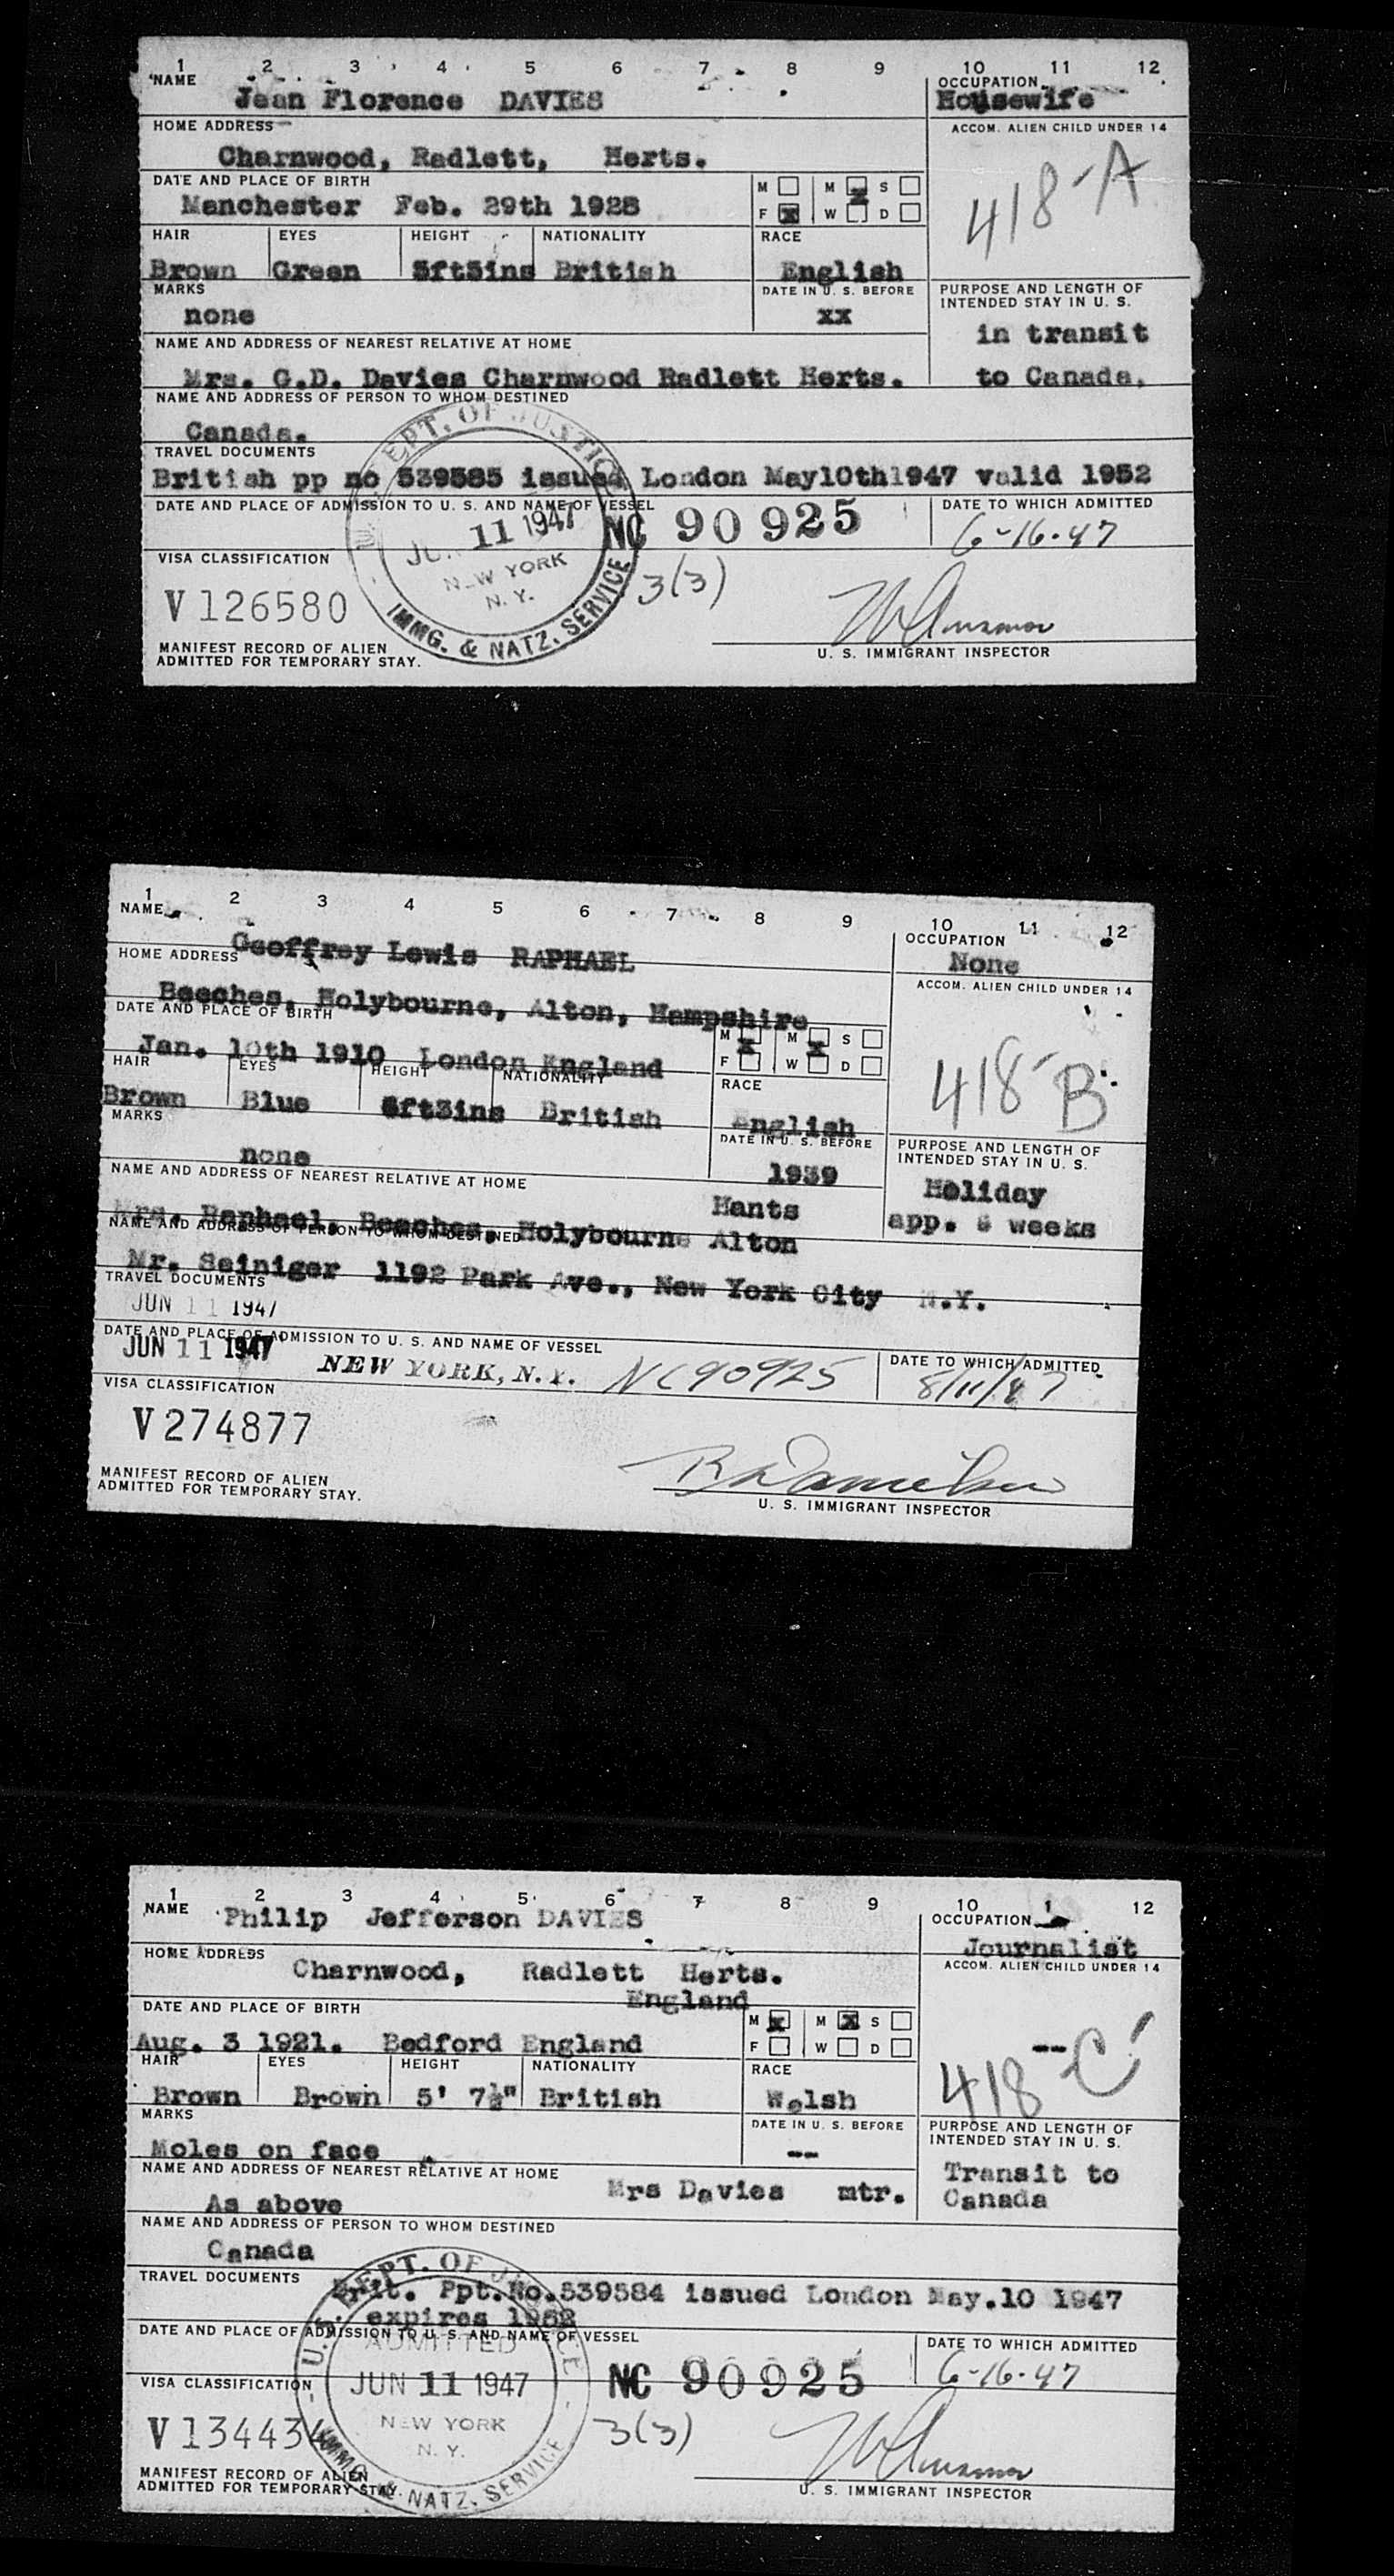 1 2 3 4 5 6 7 8 9 10 11 12
NAME OCCUPATION
Jean Florence DAVIES Housewife
HOME ADDRESS ACCOM. ALIEN CHILD UNDER 14
Charnwood, Radlett, Herts.
418-A
DATE AND PLACE OF BIRTH M M S
Manchester Feb. 29th 1928 F X W X D
HAIR EYES HEIGHT NATIONALITY RACE
Brown Green 5ft5ins British English
MARKS DATE IN U. S. BEFORE PURPOSE AND LENGTH OF
INTENDED STAY IN U. S.
none xx in transit
NAME AND ADDRESS OF NEAREST RELATIVE AT HOME
Mrs. G.D. Davies Charnwood Radlett Herts. to Canada.
NAME AND ADDRESS OF PERSON TO WHOM DESTINED
Canada.
TRAVEL DOCUMENTS
British pp no 539585 issued London May10th1947 valid 1952
DATE AND PLACE OF ADMISSION TO U. S. AND NAME OF VESSEL DATE TO WHICH ADMITTED
DEPT. OF JUSTICE
11 1947 NC 90925 6-16-47
NEW YORK
N. Y.
IMMG. & NATZ. SERVICE
VISA CLASSIFICATION 3(3)
V126580
MANIFEST RECORD OF ALIEN
ADMITTED FOR TEMPORARY STAY.
U. S. IMMIGRANT INSPECTOR
1 2 3 4 5 6 7 8 9 10 11 12
NAME OCCUPATION
Geoffrey Lewis RAPHAEL None
HOME ADDRESS ACCOM. ALIEN CHILD UNDER 14
Beeches, Holybourne, Alton, Hampshire
418-B
DATE AND PLACE OF BIRTH M X M X S
Jan. 10th 1910 London England F W D
HAIR EYES HEIGHT NATIONALITY RACE
Brown Blue 6ft3ins British English
MARKS DATE IN U. S. BEFORE PURPOSE AND LENGTH OF
INTENDED STAY IN U. S.
none 1939 Holiday
NAME AND ADDRESS OF NEAREST RELATIVE AT HOME
Hants app. weeks
Mrs. Raphael, Beeches, Holybourne Alton
NAME AND ADDRESS OF PERSON TO WHOM DESTINED
Mr. Seiniger 1192 Park Ave., New York City N.Y.
TRAVEL DOCUMENTS
JUN 11 1947
DATE AND PLACE OF ADMISSION TO U. S. AND NAME OF VESSEL DATE TO WHICH ADMITTED
JUN 11 1947 NEW YORK, N.Y. NC90925 8/11/47
VISA CLASSIFICATION
V274877
MANIFEST RECORD OF ALIEN
ADMITTED FOR TEMPORARY STAY.
U. S. IMMIGRANT INSPECTOR
1 2 3 4 5 6 7 8 9 10 1 12
NAME OCCUPATION
Philip Jefferson DAVIES Journalist
HOME ADDRESS ACCOM. ALIEN CHILD UNDER 14
Charnwood, Radlett Herts.
England
--
418-C
DATE AND PLACE OF BIRTH M X M X S
Aug. 3 1921. Bedford England F W D
HAIR EYES HEIGHT NATIONALITY RACE
Brown Brown 5' 7½" British Welsh
MARKS DATE IN U. S. BEFORE PURPOSE AND LENGTH OF
INTENDED STAY IN U. S.
Moles on face -- Transit to
Canada
NAME AND ADDRESS OF NEAREST RELATIVE AT HOME
As above Mrs Davies mtr.
NAME AND ADDRESS OF PERSON TO WHOM DESTINED
Canada
TRAVEL DOCUMENTS
Brit. Ppt.No.539584 issued London May.10 1947
expires 1952
DATE AND PLACE OF ADMISSION TO U. S. AND NAME OF VESSEL DATE TO WHICH ADMITTED
U.S. DEPT. OF JUSTICE
ADMITTED
JUN 11 1947 NC 90925 6-16-47
NEW YORK
N. Y.
IMMG. & NATZ. SERVICE
VISA CLASSIFICATION 3(3)
V134434
MANIFEST RECORD OF ALIEN
ADMITTED FOR TEMPORARY STAY.
U. S. IMMIGRANT INSPECTOR